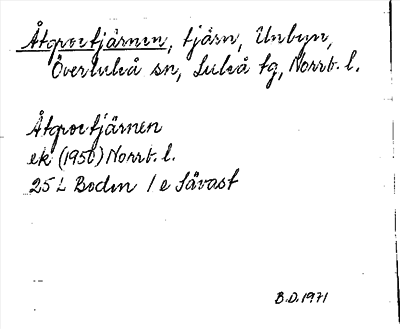 Åtgroptjärnen, tjärn, Unbyn,
Överluleå sn, Luleå tg, Norrb. l.
Åtgroptjärnen
ek (1950) Norrb. l.
25 L Boden 1 e Sävast
B.D. 1971